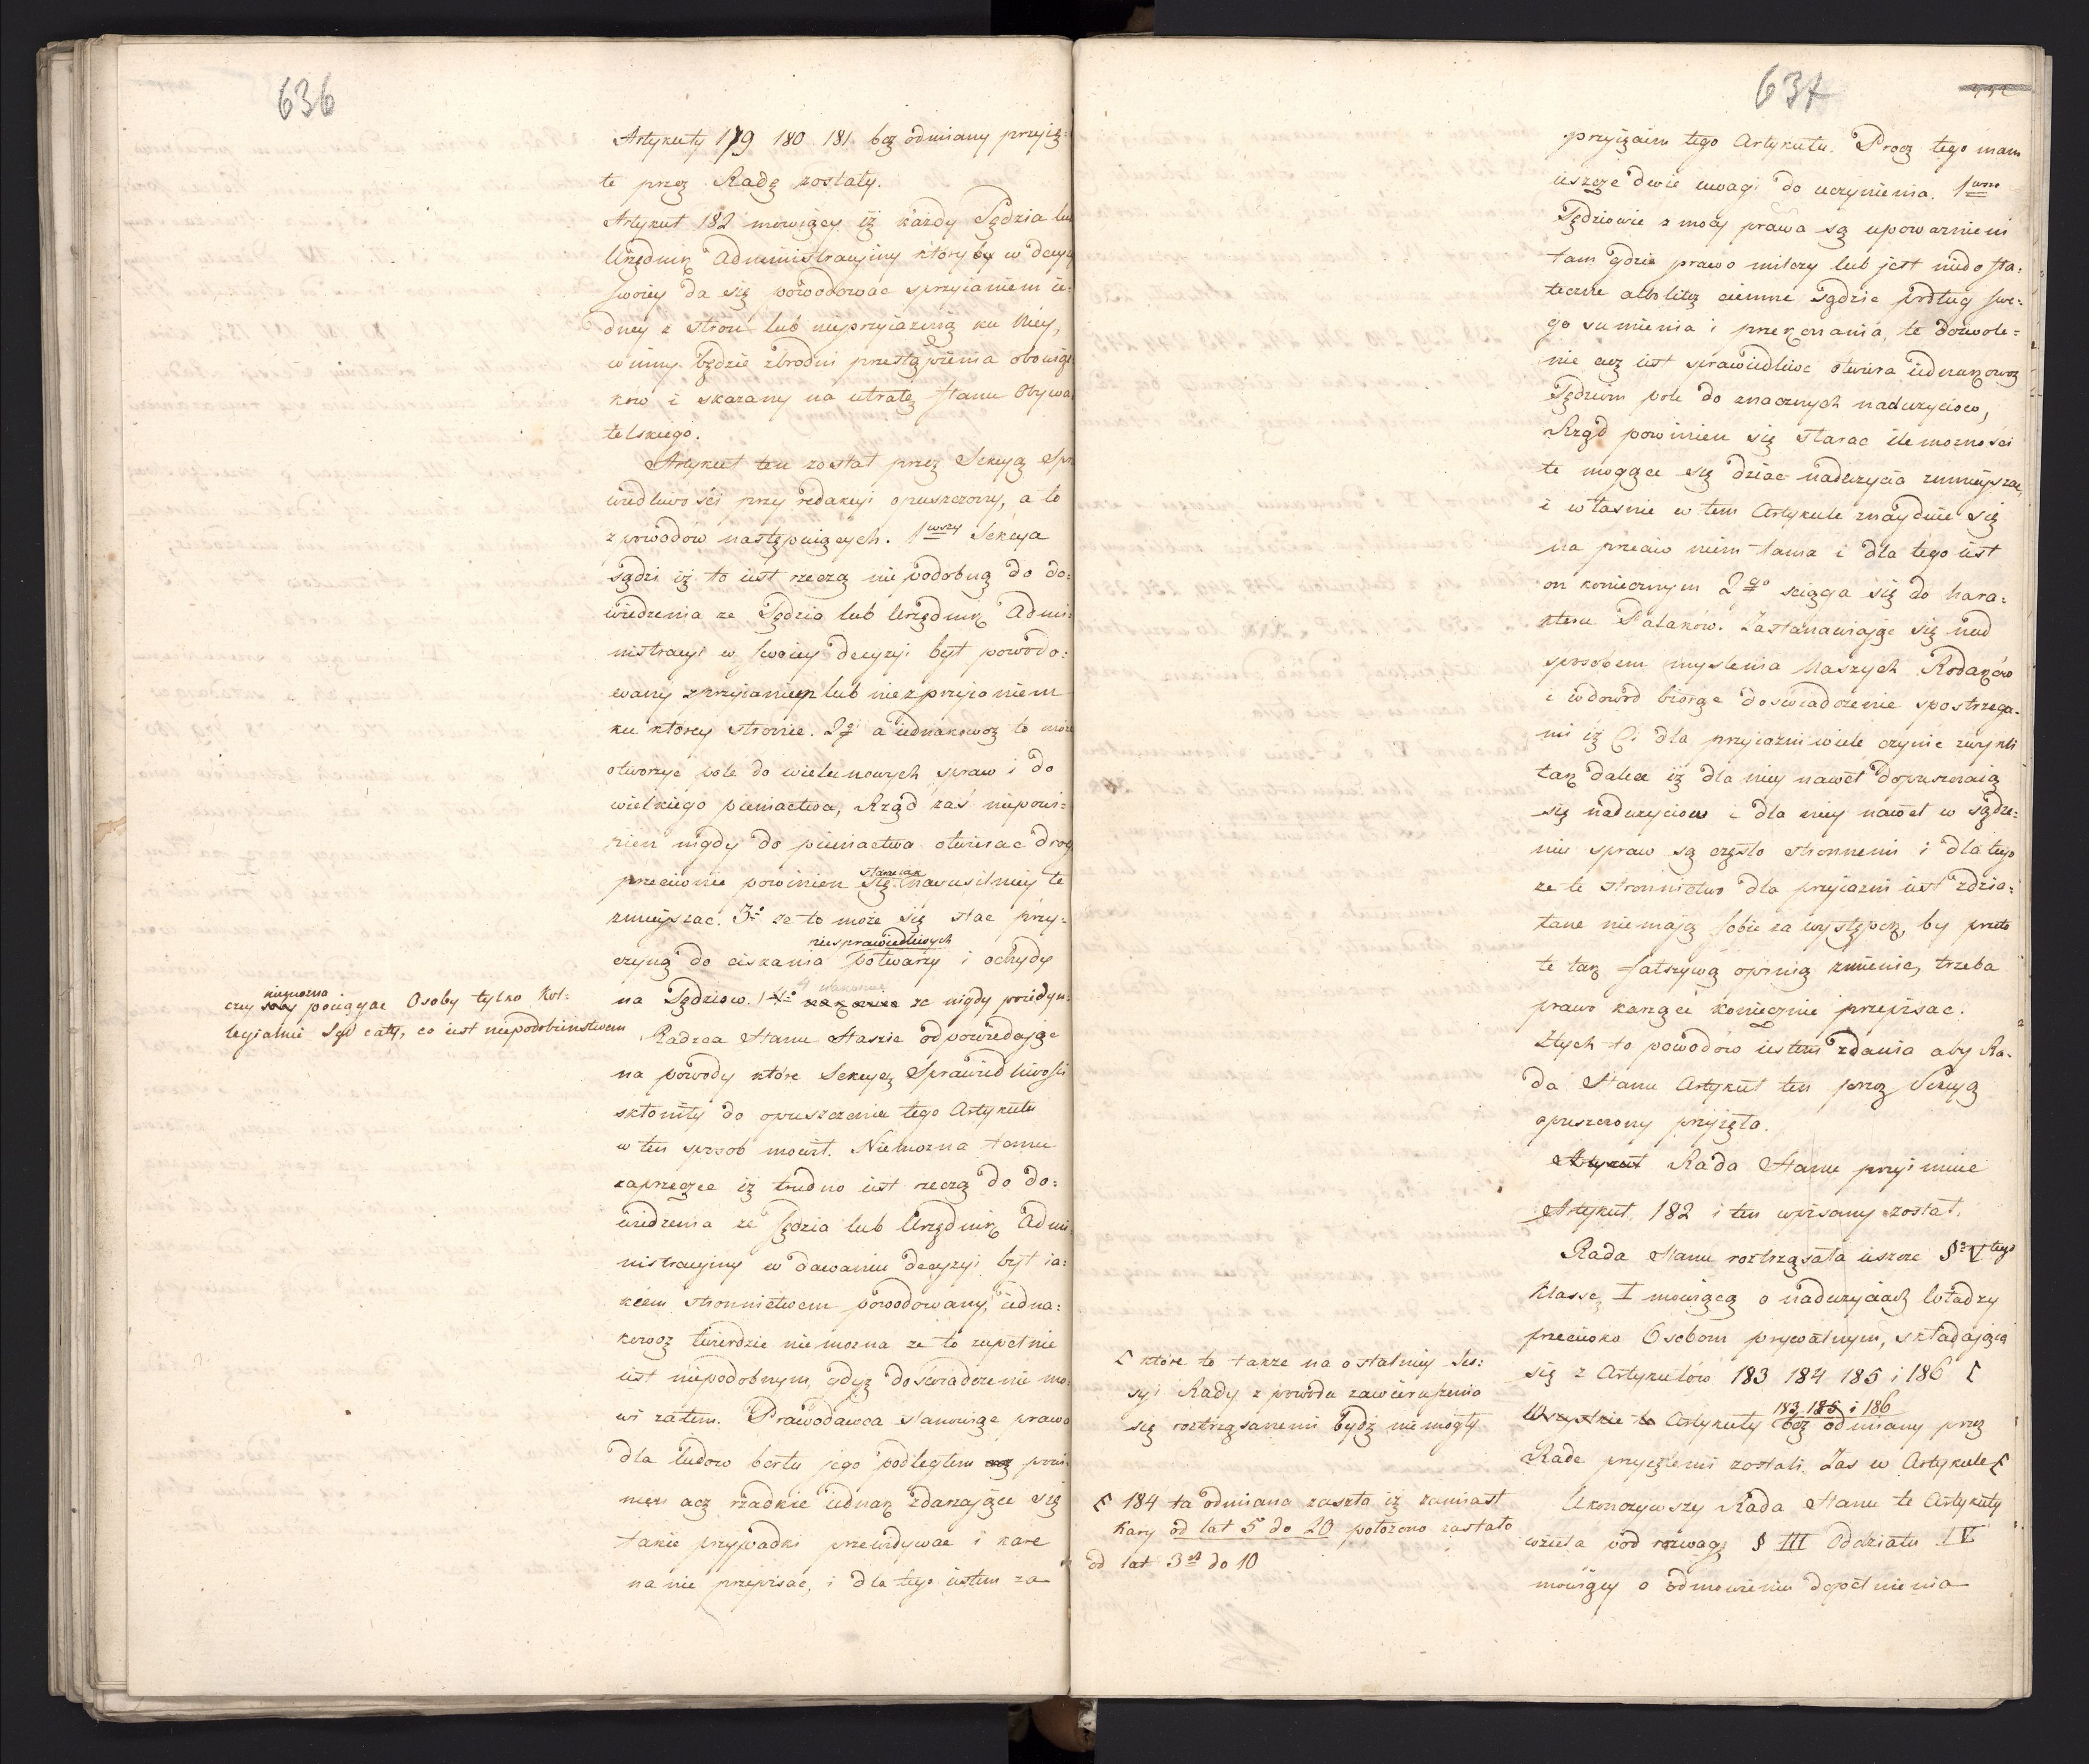 636
Artykuły 179 180 181. bez odmiany przyię=
te przez Radę zostały.
Artykuł 182 mówiący iż każdy Sędzia lub
Urzędnik Administracyiny któryby w decyzyi
swoiey da się powodować sprzyianiem ie=
dney z stron lub nieprzyiaznią ku Niey,
winny będzie zbrodni przestąpienia obowiąz
ków i skazany na utratę stanu Obywa
telskiego.
Artykuł ten został przez Sekcyą Spra
wiedliwości przy redakcyi opuszczony, a to
z powodów następuiących. 1wszy Sekcya
sądzi iż to iest rzeczą nie podobną do do=
wiedzenia ze Sędzia lub Urzędnik Admi=
nistracyi w swoiey decyzyi był powodo=
wany sprzyianiem lub niezprzyianiem
ku którey stronie. 2gi a iednakowoż to może
otworzyć pole do wielu nowych spraw i do
wielkiego pieniactwa, Rząd zaś niepowi=
nien nigdy do pieniactwa otwierać drog
przeciwnie powinien się starać nayusilniey te
zmnieyszać. 3o że to może się stać przy=
czyną do ciskania niesprawiedliwych potwarzy i ochydy
na Sędziow. 4o nakoniec ze nigdy poiedyn=
czey niemożna pociągać Osoby tylko Kol=
legialnie Sąd cały, co iest niepodobieństwem
Radzca Stanu Staszic odpowiedając
na powody które Sekcyą Sprawiedliwości
skłoniły do opuszczenia tego Artykułu
w ten sposob mówił. Niemożna temu
zaprzeczać iż trudno iest rzeczą do do=
wiedzenia ze Sędzia lub Urzędnik Admi
nistracyiny w dawaniu decyzyi był ia=
kiem stronnictwem powodowany, iedna=
kowoż twierdzić nie można ze to zupełnie
iest niepodobnym, gdyż doświadczenie mó=
wi zatem. Prawodawca stanowiąc prawo
dla ludow berłu jego podległem powi=
nien acz rzadkie iednak zdarzające się
takie przypadki przewidywać i karę
na nie przepisać, i dla tego iestem za
637
przyięciem tego Artykułu. Procz tego mam
ieszcze dwie uwagi do uczynienia. 1wsze
Sędziowie z mocy prawa są upoważnieni
tam gdzie prawo milczy lub jest niedosta=
teczne albo liteż ciemne sądzić podług swe=
go sumienia i przekonania, te dozwole=
nie acz iest sprawiedliwe otwiera iednakowoż
Sędziom pole do znacznych nadużyciow,
Rząd powinien się starać ile możności
te mogące się dziać nadużycia zmnieyszać,
i własnie w tem Artykule znayduie się
na przeciw niem tama i dla tego iest
on koniecznym 2go sciąga się do hara=
kteru Polaków. Zastanawiając się nad
sposobem myslenia Naszych Rodaków
i wdowód biorąc doświadczenie spostrzega=
my iż Ci dla przyiaźni wiele czynić zwykli
tak dalece iż dla niey nawet dopuszczaią
się nadużyciow i dla niey nawet w sądze=
niu spraw są często stronnemi i dla tego
że te stronnictwo dla przyiaźni iest zdzia=
łane niemają sobie za występek, by przeto
te tak fałszywą opinią zmienić, trzeba
prawo karzące koniecznie przepisać.
Z tych to powodów iestem zdania aby Ra=
da Stanu Artykuł ten przez Sekcyą
opuszczony przyięła.
Artykuł Rada Stanu przyimuie
Artykuł 182 i ten wpisany został.
Rada Stanu roztrząsała ieszcze §u Vtego
Klassę I mówiącą o nadużyciach władzy
przeciwko Osobom prywatnym, składającą
się z Artykułów 183 184 185 i 186 [
[ które to także na ostatniey Ses=
syi Rady z powodu zawieruszenia
się roztrząsanemi bydź nie mogły
Wszystkie te Artykuły 183, 185 i 186 bez odmiany przez
Radę przyiętemi zostali. Zas w Artykule [
[ 184 ta odmiana zaszła iż zamiast
Kary od lat 5 do 20 położono zastało
od lat 3ch do 10
Ukonczywszy Rada Stanu te Artykuły
wzięła pod rozwagę § III Oddziału IV
mówiący o odmowieniu dopełnienia